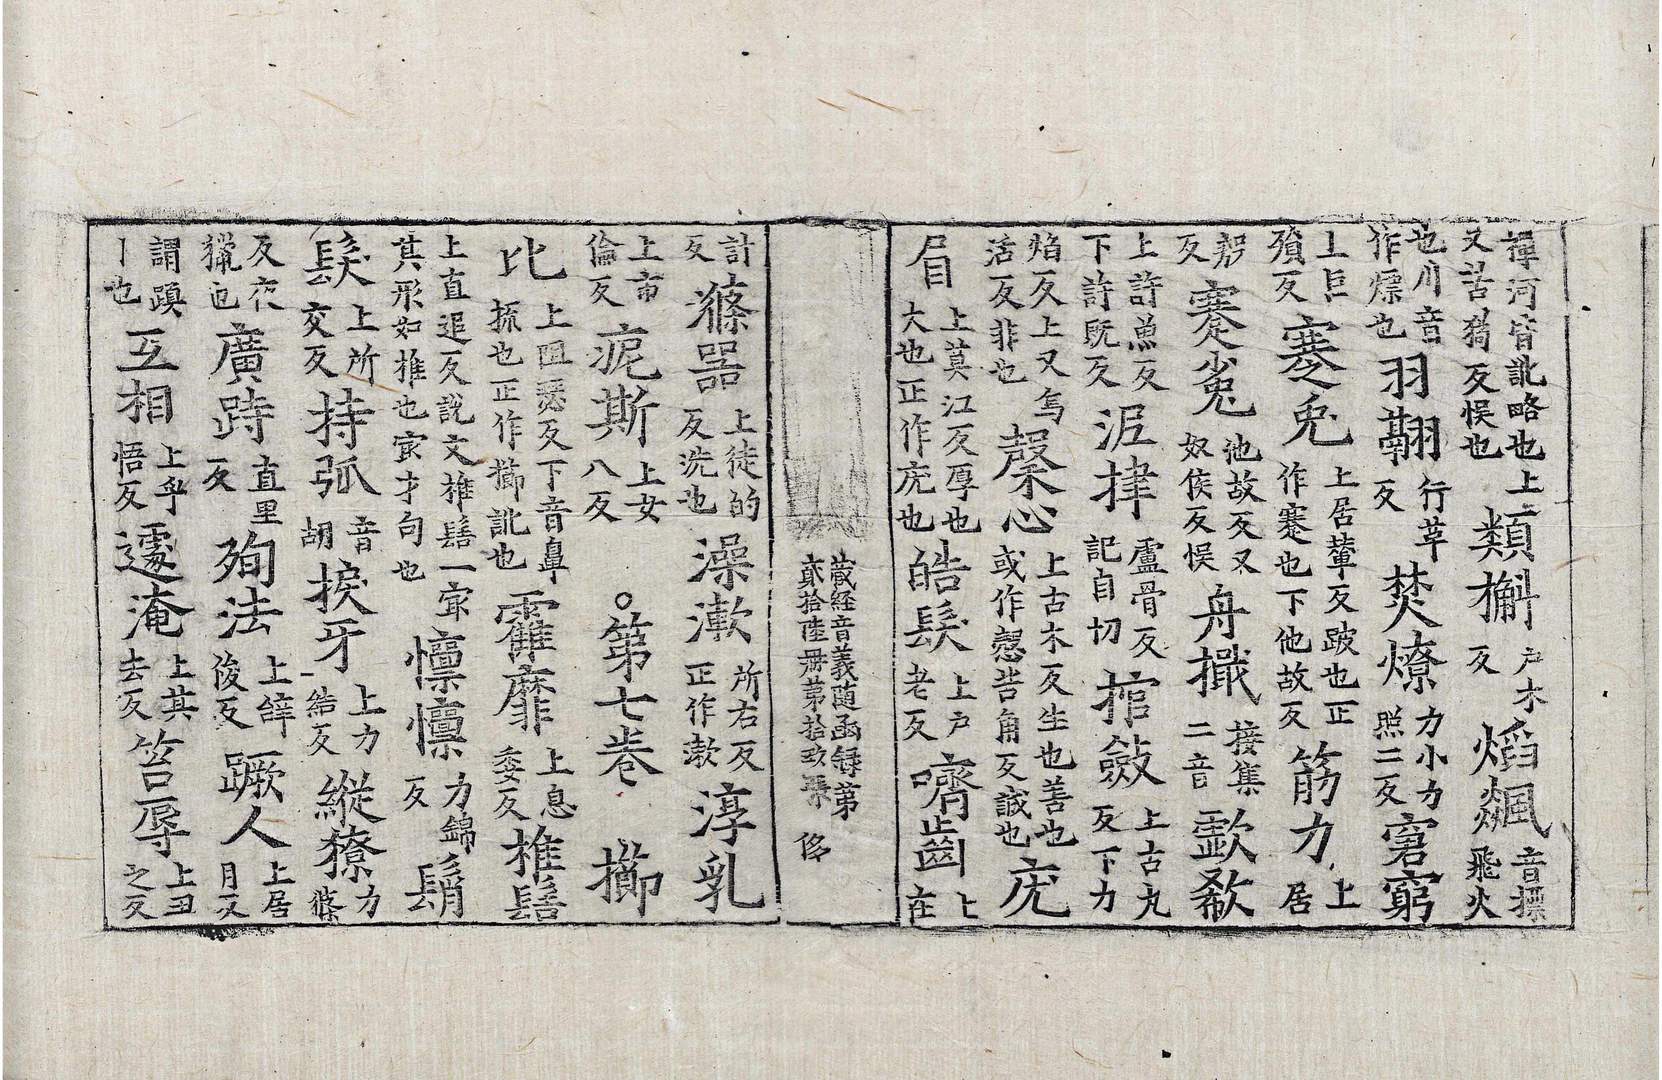 禪河皆訛略也上二又苦猗反悮也類槲户木反熖飊音摽飛火
也川音作熛也羽翿行草反焚燎力小力照二反窘窮
上巨殞反蹇兎上居輦反跛也正作蹇也下他故反筋力上居
反蹇㝹他故反又奴侯反悮舟檝接集二音歔欷
上許魚反下許既反硉盧骨反記自切棺斂上古丸反下力
焰反上又烏活反非也心上古木反生也善也或作愨苦角反誠也庬
眉上莫江反厚也大也正作庬也皓髮上户老反嚌齒上在
藏經音義随函録第貳拾陸册第拾玖張 侈
計反滌器上徒的反洗也澡漱所右反正作漱淳乳
上市倫反痆斯上女八反○第七卷 櫛
比上阻瑟反下音鼻梳也正作櫛訛也靃靡上息委反椎髻
上直追反說文椎髻一㝡其形如椎也㝡才句也懍懍力錦反髾
髮上所交反持弧音胡捩牙上力結反縱獠力
反夜獵也廣跱直里反殉法上辝俊反蹶人上居月又
謂躓丨也互相上乎悟反遽淹上其去反笞辱上丑之反